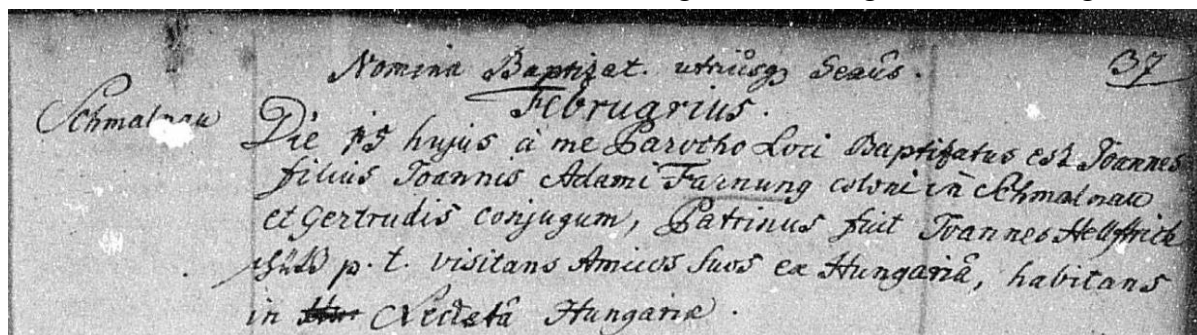 Nomina Baptizat. utriusq3 Sexûs. 37
Februarius.
Schmalnau
Die 15 hujus à me Parocho Loci Baptizatus est Joannes
filius Joannis Adami Farnung coloni in Schmalnau
et Gertrudis conjugum, Patrinus fuit Joannes
p. t. visitans Amicos suos ex Hungariâ, habitans
in Hungariæ.